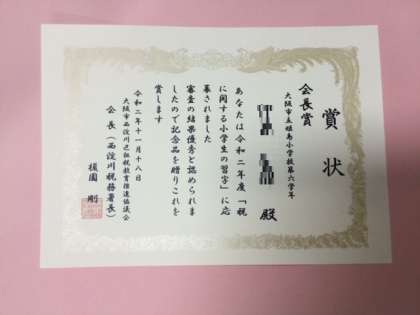 賞状
会長賞
大阪市立姫島小学校第六学年
殿
あなたは令和二年度「税
に関する小学生の習字」に応
募されました
審査の結果優秀と認められま
したので記念品を贈りこれを
賞します
令和二年十一月十八日
大阪市西淀川区租税教育推進協議会
会長（西淀川税務署長）
剛